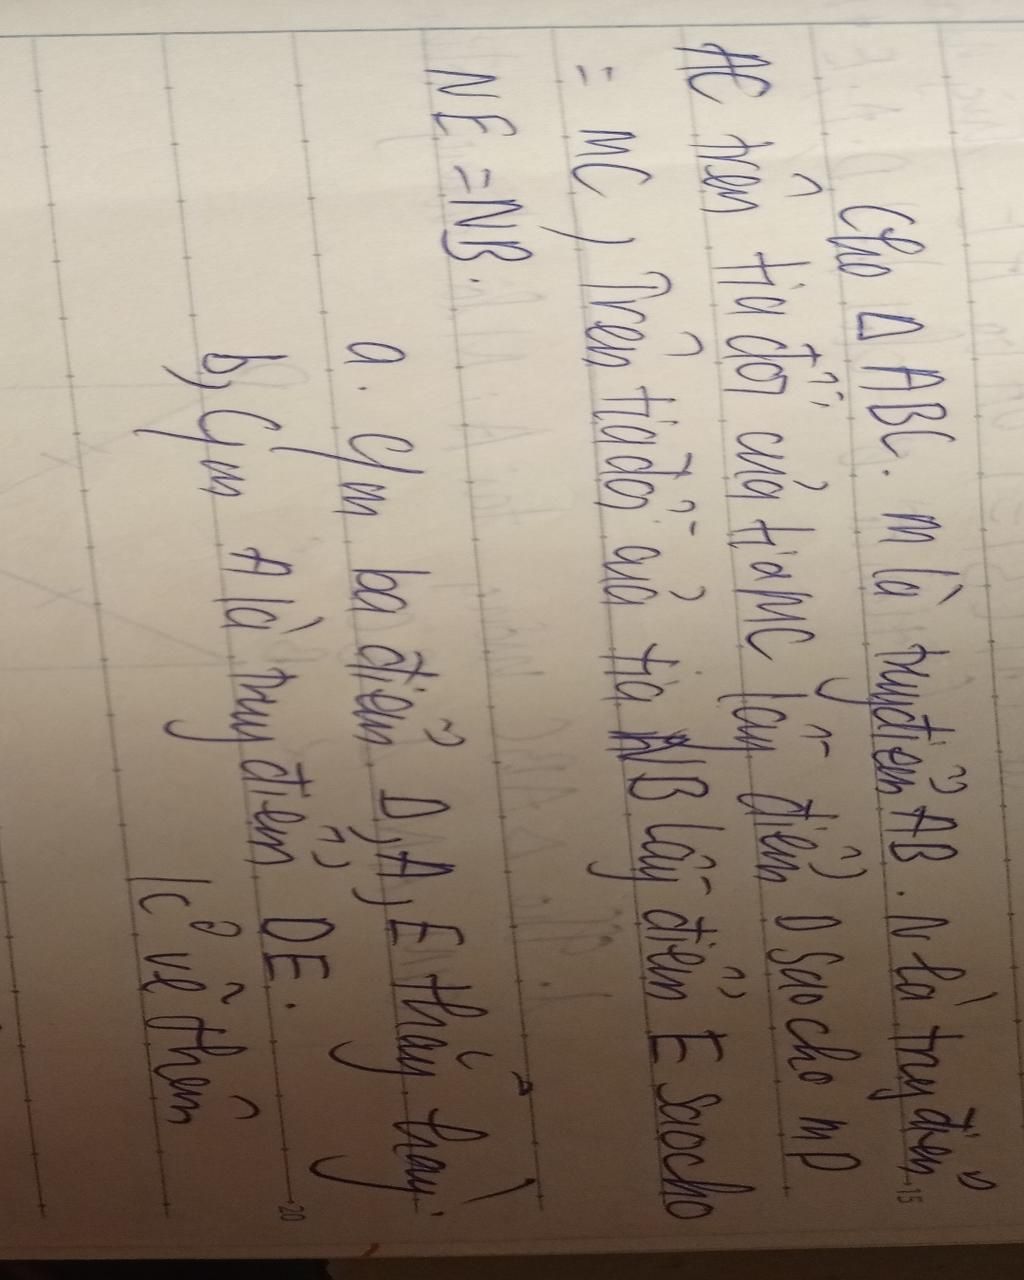 Cho Δ ABC. M là trung điểm AB. N là trung điểm
AC trên tia đối của tia MC lấy điểm D sao cho MD
= MC, Trên tia đối của tia NB lấy điểm E sao cho
NE = NB.
a. Cm ba điểm D, A, E thẳng hàng
b, Cm A là trung điểm DE.
kẻ vẽ thêm
15
20